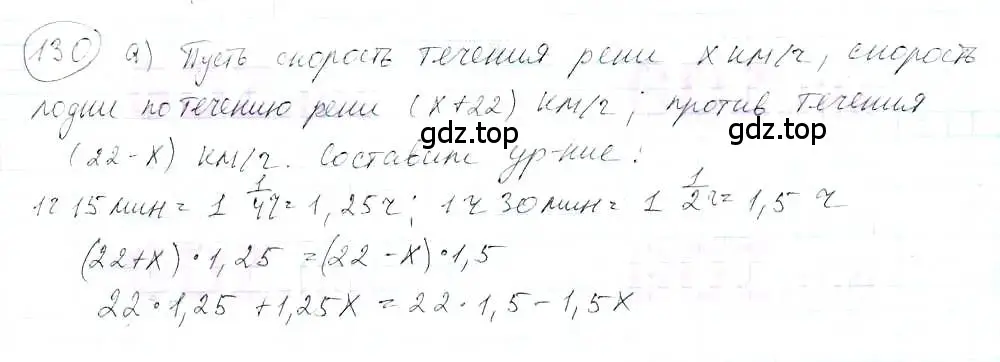 130 а) Пусть скорость течения реки x км/ч, скорость
лодки по течению реки (x+22) км/ч; против течения
gdz.top gdz.top
(22-x) км/ч. Составим ур-ние:
1ч 15мин = 1 1/4ч = 1,25ч; 1ч 30мин = 1 1/2ч = 1,5 ч
(22+x)·1,25 = (22-x)·1,5
gdz.top
22·1,25 + 1,25x = 22·1,5 - 1,5x